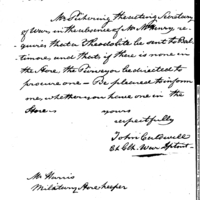 Mr Pickering the acting Secretary
of War, in the absence of Mr McHenry, re-
quires that a Theodolite be sent to Balt-
imore, and that if there is none in
the Store, the Purveyor be directed to
procure one — Be pleased to inform
me, whether you have one in the
Store —
yours
respectfully
John Caldwell
Ch Clk. War Dptmt.
Mr Harris
Military Storekeeper